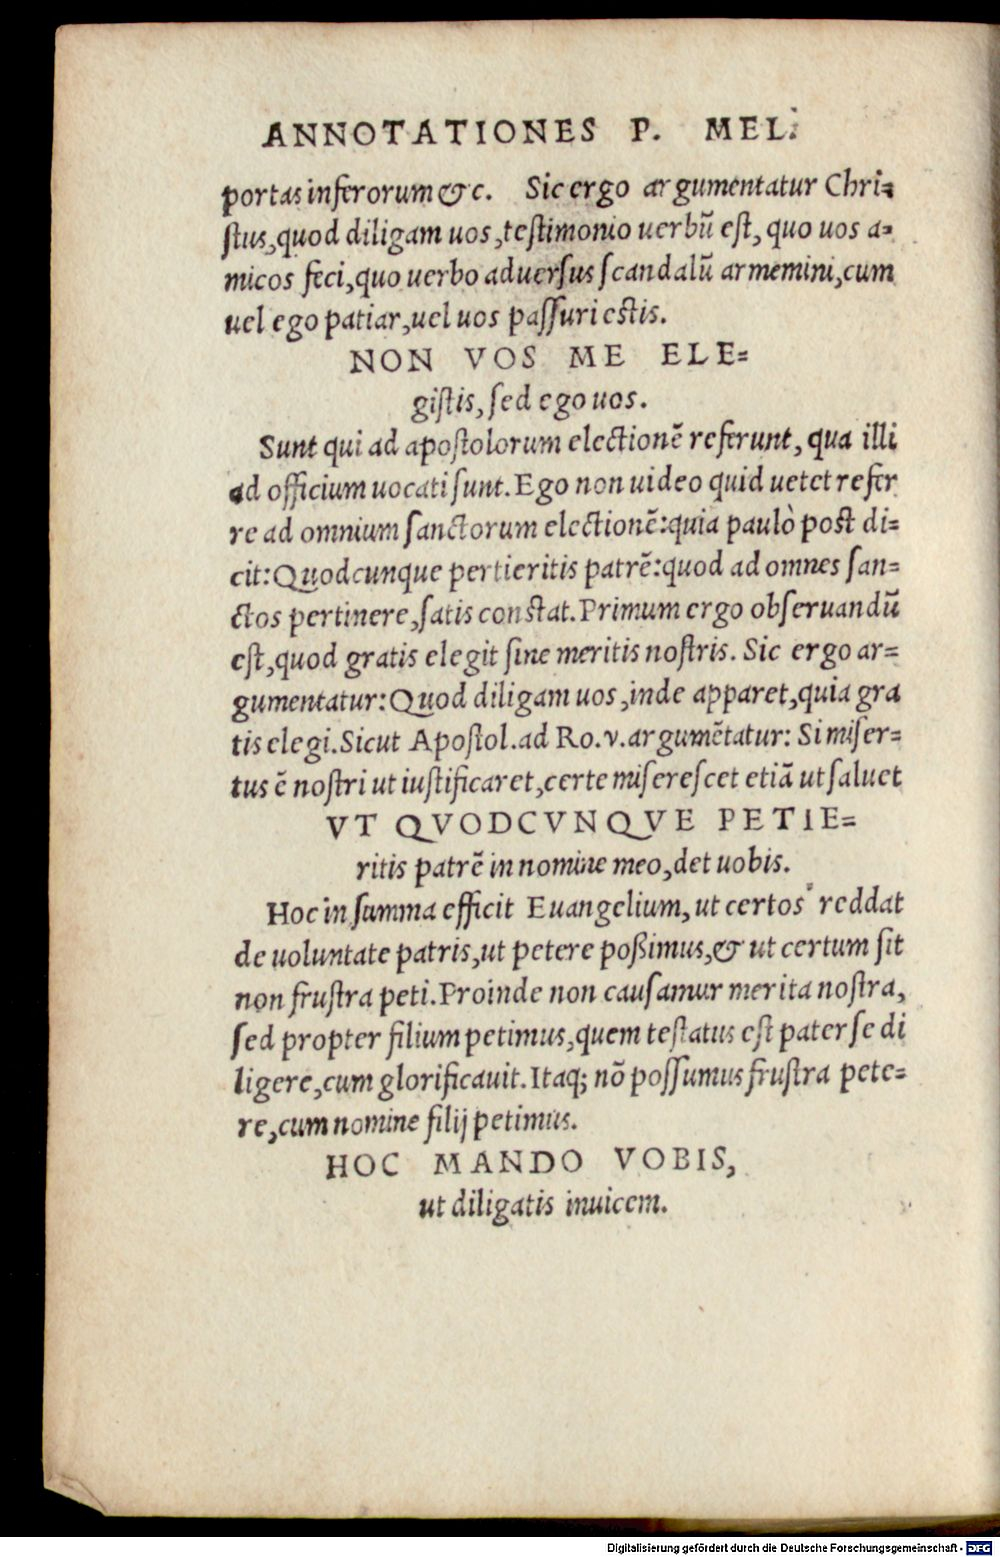 ANNOTATIONES P. MEL.
portas inferorum &c. Sic ergo argumentatur Chri=
stus, quod diligam uos, testimonio uerbũ est, quo uos a=
micos feci, quo uerbo aduersus scandalũ armemini, cum
uel ego patiar, uel uos passuri estis.
NON VOS ME ELE=
gistis, sed ego uos.
Sunt qui ad apostolorum electionẽ referunt, qua illi
ad officium uocati sunt. Ego non uideo quid uetet refer
re ad omnium sanctorum electionẽ: quia paulò post di=
cit: Quodcunque pertieritis patrẽ: quod ad omnes san=
ctos pertinere, satis constat. Primum ergo obseruandũ
est, quod gratis elegit sine meritis nostris. Sic ergo ar=
gumentatur: Quod diligam uos, inde apparet, quia gra
tis elegi. Sicut Apostol. ad Ro. v. argumẽtatur: Si miser=
tus ẽ nostri ut iustificaret, certe miserescet etiã ut saluet
VT QVODCVNQVE PETIE=
ritis patrẽ in nomine meo, det uobis.
Hoc in summa efficit Euangelium, ut certos reddat
de uoluntate patris, ut petere poßimus, & ut certum sit
non frustra peti. Proinde non causamur merita nostra,
sed propter filium petimus, quem testatus est pater se di
ligere, cum glorificauit. Itaq; nõ possumus frustra pete=
re, cum nomine filij petimus.
HOC MANDO VOBIS,
ut diligatis inuicem.
Digitalisierung gefördert durch die Deutsche Forschungsgemeinschaft - DFG